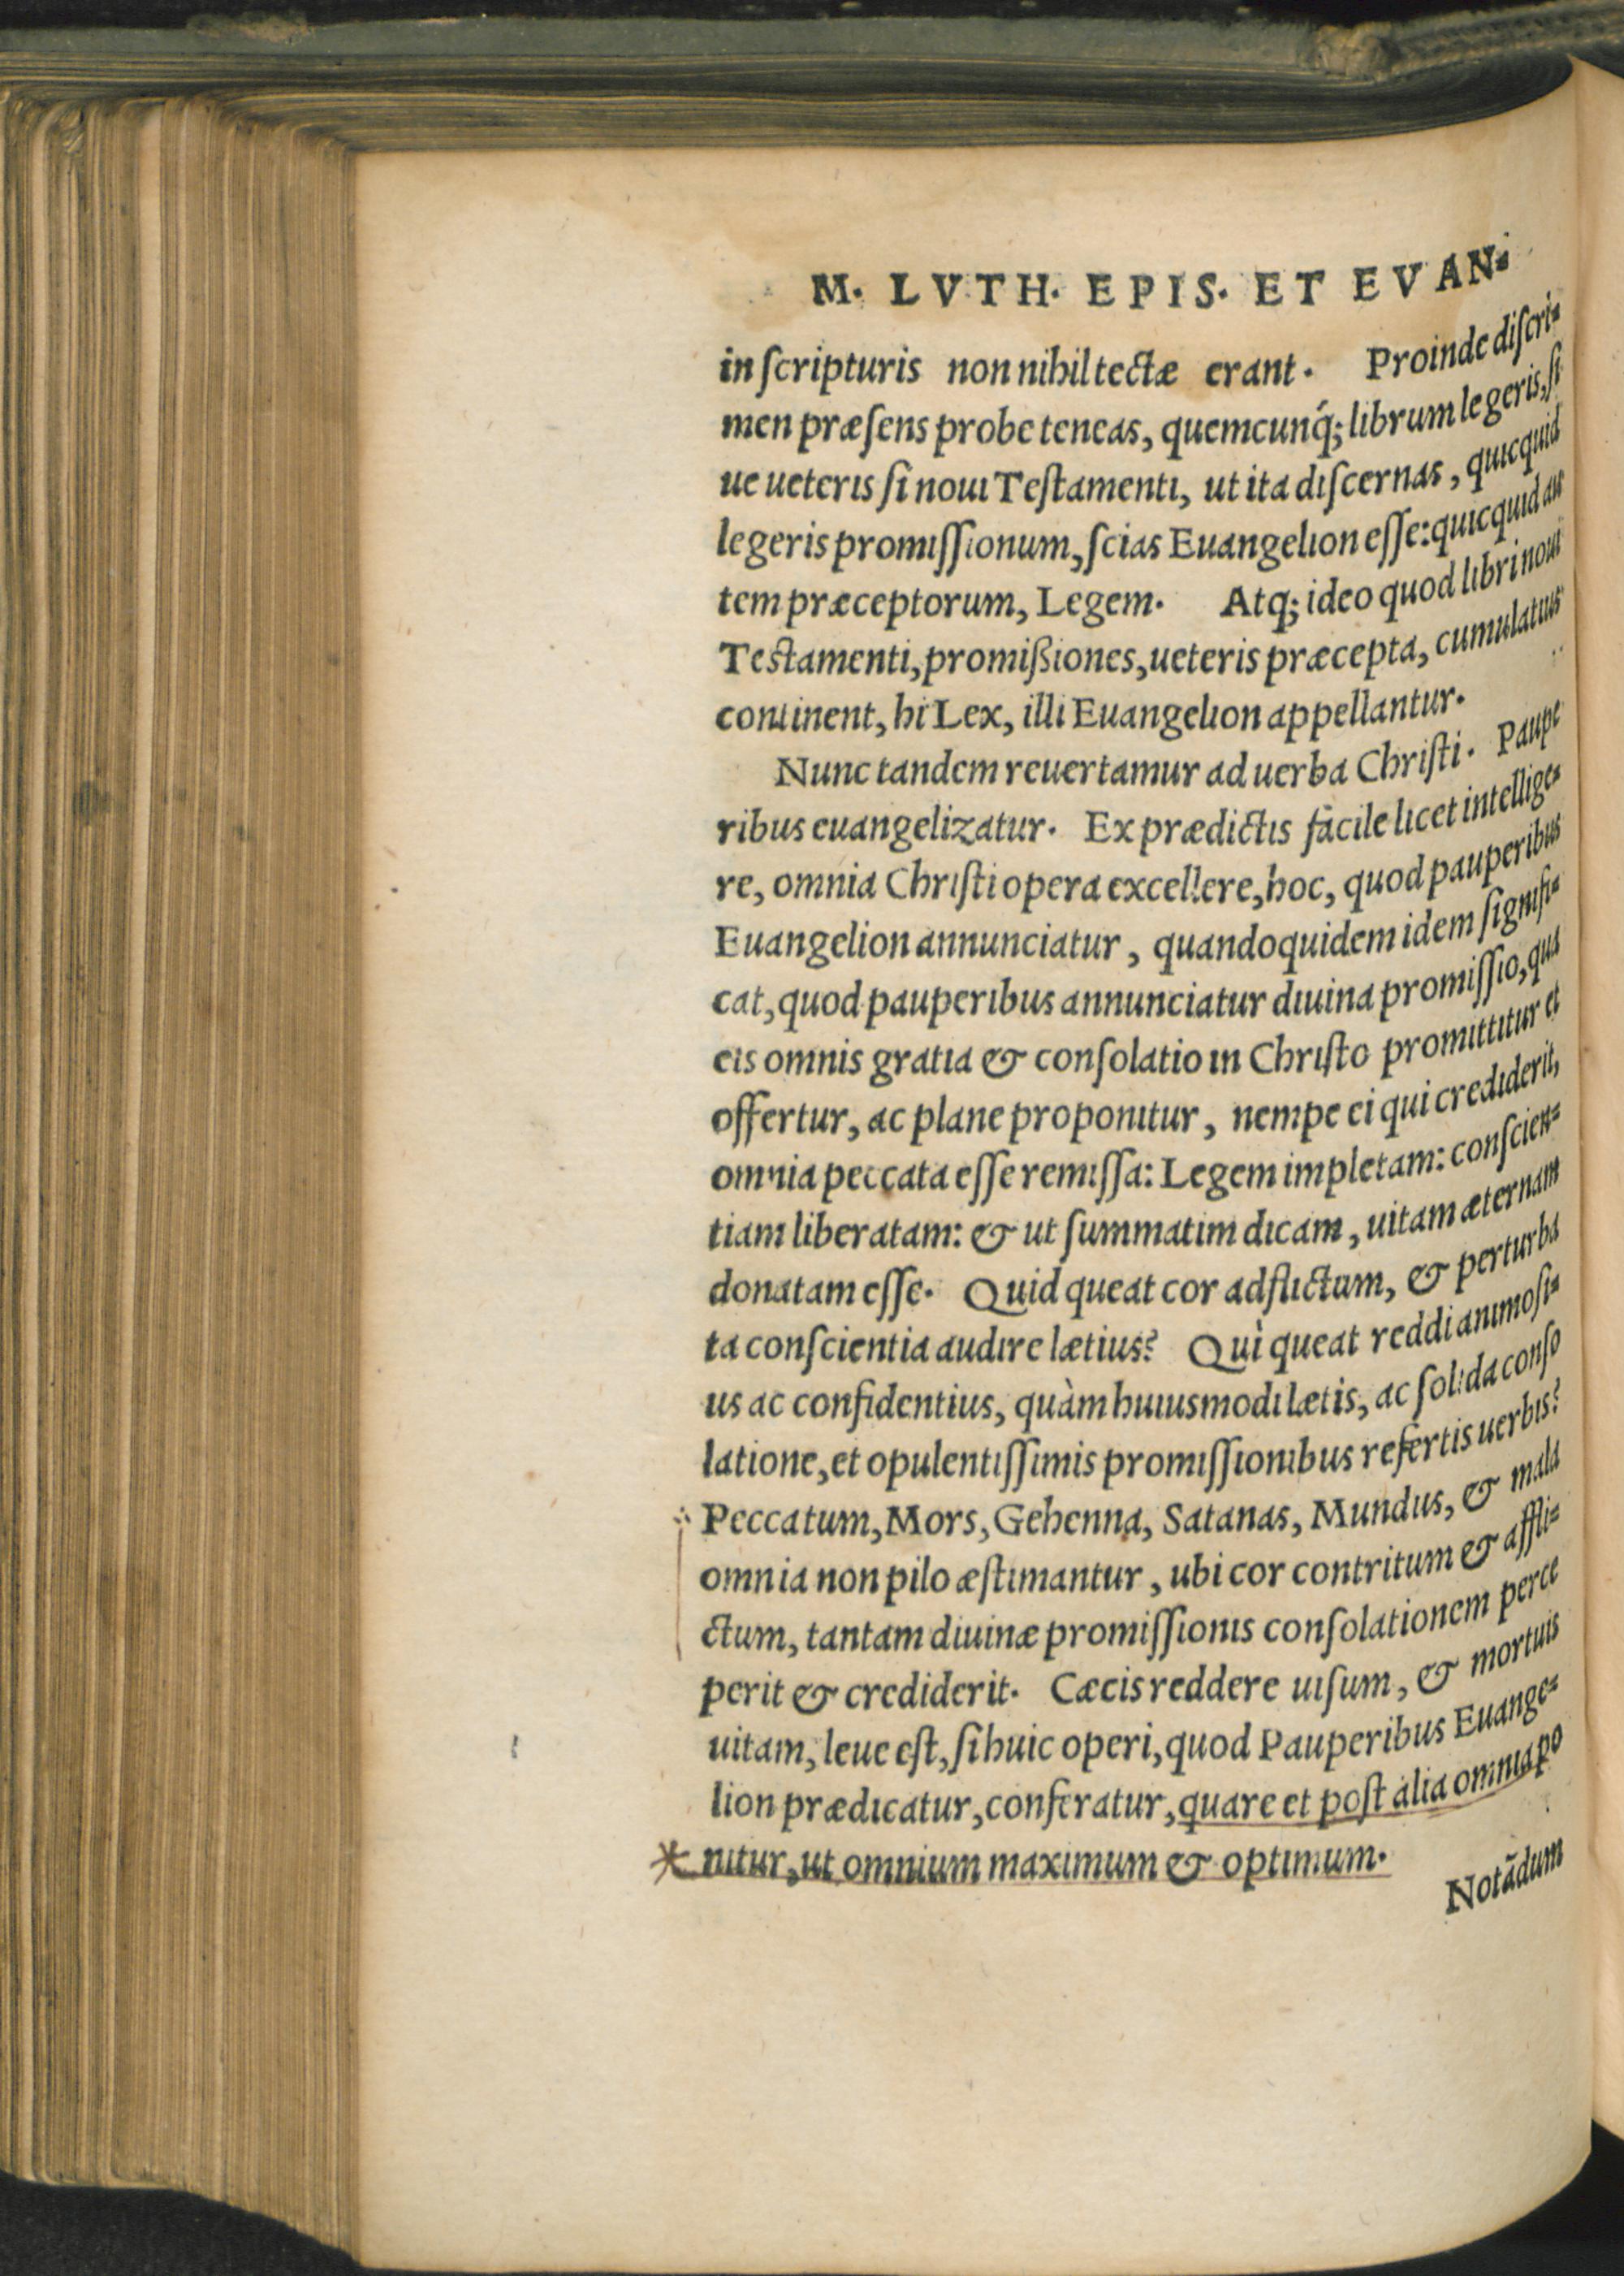 M. LVTH. EPIS. ET EVAN⸗
in ſcripturis non nihil tectæ erant. Proinde diſcri⸗
men præſens probe teneas, quemcunq́; librum legeris, ſi
ue ueteris ſi noui Teſtamenti, ut ita diſcernas, quicquid
legeris promiſſionum, ſcias Euangelion eſſe: quicquid au
tem præceptorum, Legem. Atq; ideo quod libri noui
Teſtamenti, promißiones, ueteris præcepta, cumulatius
continent, hi Lex, illi Euangelion appellantur.
Nunc tandem reuertamur ad uerba Chriſti. Paupe
ribus euangelizatur. Ex prædictis facile licet intellige⸗
re, omnia Chriſti opera excellere, hoc, quod pauperibus
Euangelion annunciatur, quandoquidem idem ſignifi⸗
cat, quod pauperibus annunciatur diuina promiſſio, qua
eis omnis gratia & conſolatio in Chriſto promittitur et
offertur, ac plane proponitur, nempe ei qui crediderit,
omnia peccata eſſe remiſſa: Legem impletam: conſcien⸗
tiam liberatam: & ut ſummatim dicam, uitam æternam
donatam eſſe. Quid queat cor adflictum, & perturba
ta conſcientia audire lætius? Quì queat reddi animoſi⸗
us ac confidentius, quàm huiusmodi lætis, ac ſolida conſo
latione, et opulentiſſimis promiſſionibus refertis uerbis?
Peccatum, Mors, Gehenna, Satanas, Mundus, & mala
omnia non pilo æſtimantur, ubi cor contritum & affli⸗
ctum, tantam diuinæ promiſſionis conſolationem perce
perit & crediderit. Cæcis reddere uiſum, & mortuis
uitam, leue eſt, ſi huic operi, quod Pauperibus Euange⸗
lion prædicatur, conferatur, quare et poſt alia omnia po
nitur, ut omnium maximum & optimum.
Notãdum